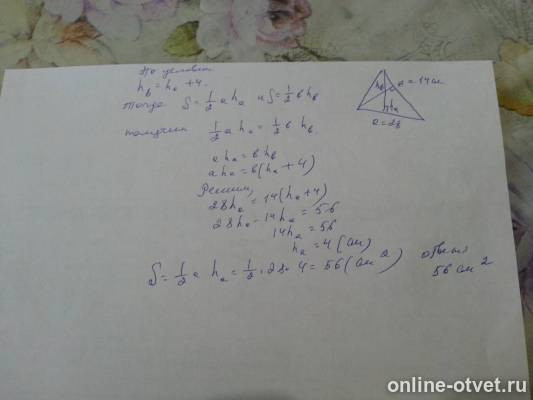 По условию
h_b = h_a + 4.
Тогда S = 1/2 a h_a и S = 1/2 b h_b
получим 1/2 a h_a = 1/2 b h_b.
a h_a = b h_b
a h_a = b(h_a + 4)
Решим,
28h_a = 14(h_a + 4)
28h_a - 14h_a = 56
14h_a = 56
h_a = 4 (см)
S = 1/2 a h_a = 1/2 · 28 · 4 = 56 (см²)
ответ
56 см²
h_b
= 14см
h_a
a = 28
online-otvet.ru